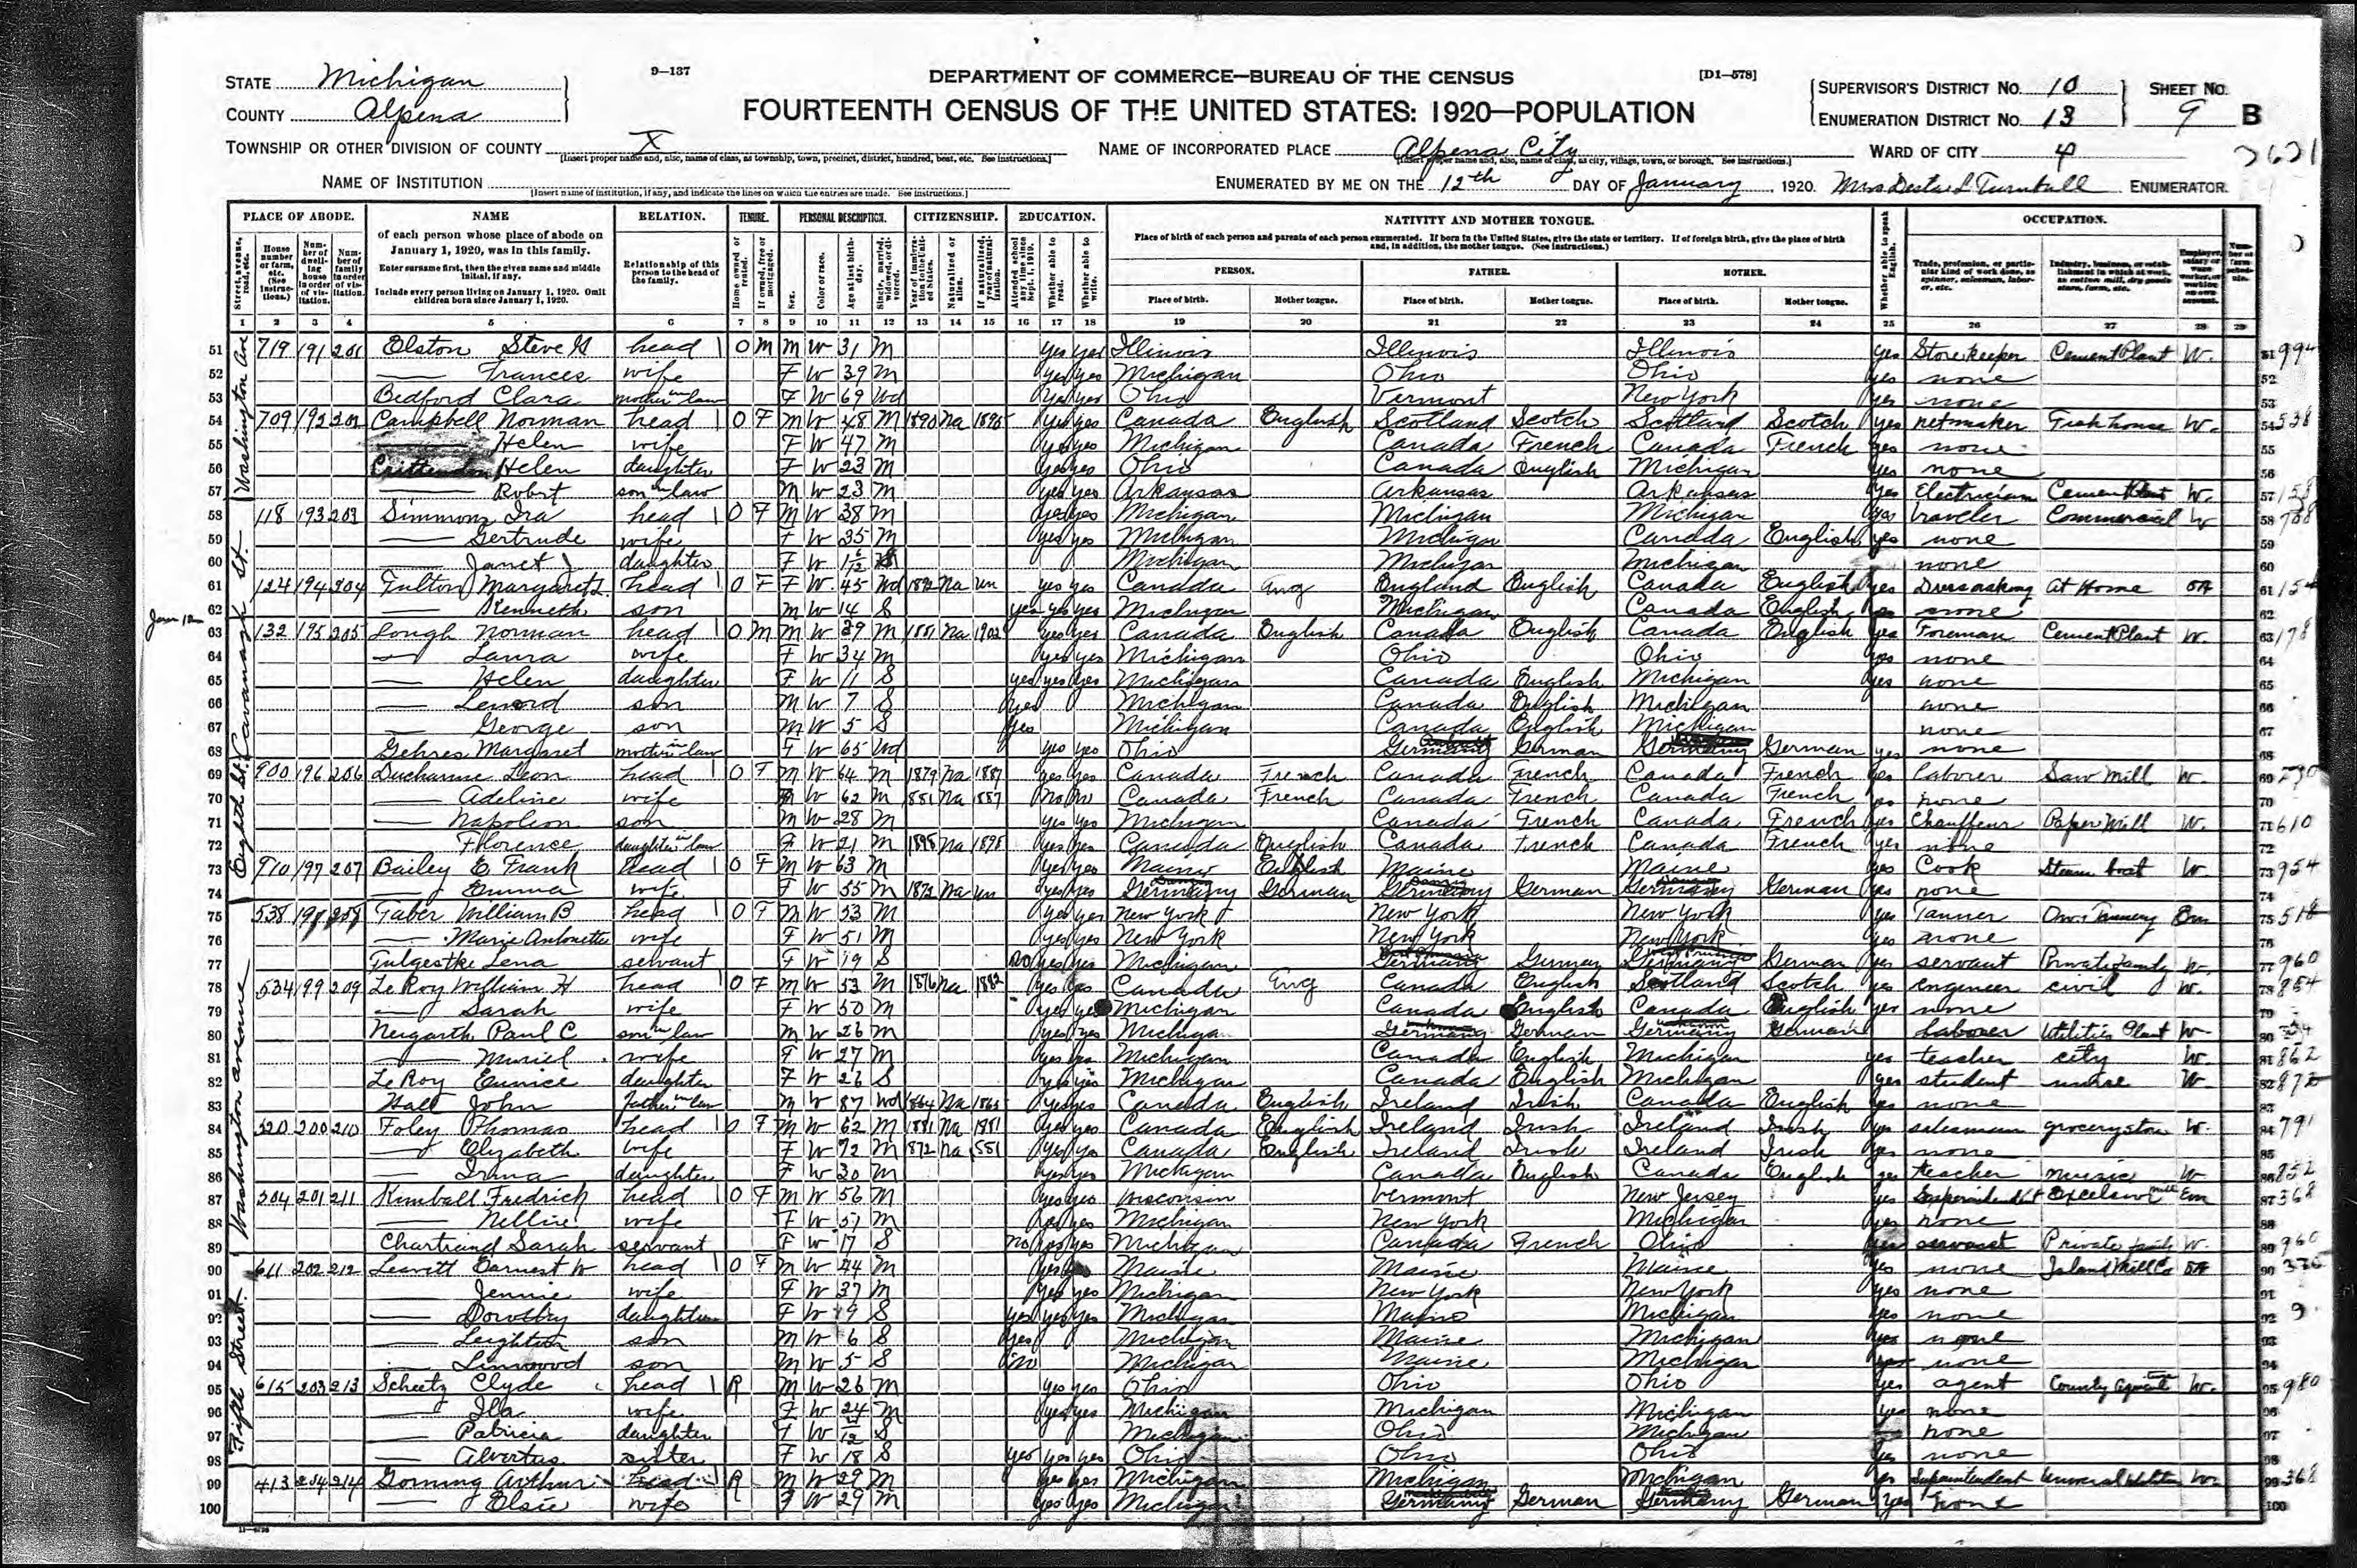 9—137
DEPARTMENT OF COMMERCE—BUREAU OF THE CENSUS
[D1—578]
STATE Michigan
COUNTY Alpena
FOURTEENTH CENSUS OF THE UNITED STATES: 1920—POPULATION
SUPERVISOR'S DISTRICT NO. 10
ENUMERATION DISTRICT NO. 13
SHEET NO. 9 B
TOWNSHIP OR OTHER DIVISION OF COUNTY X
[Insert proper name and, also, name of class, as township, town, precinct, district, hundred, beat, etc. See instructions.]
NAME OF INCORPORATED PLACE Alpena City
[Insert proper name and, also, name of class, as city, village, town, or borough. See instructions.]
WARD OF CITY 4
NAME OF INSTITUTION
[Insert name of institution, if any, and indicate the lines on which the entries are made. See instructions.]
ENUMERATED BY ME ON THE 12th DAY OF January, 1920. Mrs Turnbull ENUMERATOR.
PLACE OF ABODE. NAME RELATION. TENURE. PERSONAL DESCRIPTION. CITIZENSHIP. EDUCATION. NATIVITY AND MOTHER TONGUE. OCCUPATION.
of each person whose place of abode on January 1, 1920, was in this family.
Enter surname first, then the given name and middle initial, if any.
Include every person living on January 1, 1920. Omit children born since January 1, 1920.
Relationship of this person to the head of the family.
Place of birth of each person and parents of each person enumerated. If born in the United States, give the state or territory. If of foreign birth, give the place of birth and, in addition, the mother tongue. (See instructions.)
PERSON. FATHER. MOTHER.
Place of birth. Mother tongue. Place of birth. Mother tongue. Place of birth. Mother tongue.
1 2 3 4 5 6 7 8 9 10 11 12 13 14 15 16 17 18 19 20 21 22 23 24 25 26 27 28 29
51 719 191 201 Elston Steve head O M M W 31 M yes yes Illinois Illinois Illinois yes Storekeeper Cement Plant W.
52 Frances wife F W 39 M yes yes Michigan Ohio Ohio yes none
53 Bedford Clara mother in law F W 69 Wd yes yes Ohio Vermont New York yes none
54 709 192 202 Campbell Norman head O F M W 48 M 1890 Na 1895 yes yes Canada English Scotland Scotch Scotland Scotch yes netmaker Fish house W.
55 Helen wife F W 47 M yes yes Michigan Canada French Canada French yes none
56 Crittenden Helen daughter F W 23 M yes yes Ohio Canada English Michigan yes none
57 Robert son in law M W 23 M yes yes Arkansas Arkansas Arkansas yes Electrician Cement Plant W.
58 118 193 203 Simmons Ira head O F M W 38 M yes yes Michigan Michigan Michigan yes traveler Commercial W
59 Gertrude wife F W 35 M yes yes Michigan Michigan Canada English yes none
60 Janet daughter F W 1 6/12 S Michigan Michigan Michigan none
61 124 194 204 Fulton Margaret L. head O F F W 45 Wd 1872 Na un yes yes Canada Eng England English Canada English yes Dressmaking At Home OA
62 Kenneth son M W 14 S yes yes yes Michigan Michigan Canada English yes none
Jan 12
63 132 195 205 Lough Norman head O M M W 39 M 1881 Na 1902 yes yes Canada English Canada English Canada English yes Foreman Cement Plant W.
64 Laura wife F W 34 M yes yes Michigan Ohio Ohio yes none
65 Helen daughter F W 11 S yes yes yes Michigan Canada English Michigan yes none
66 Lenord son M W 7 S yes Michigan Canada English Michigan none
67 George son M W 5 S yes Michigan Canada English Michigan none
68 Gehres Margaret mother in law F W 65 Wd yes yes Ohio Germany German Germany German yes none
69 900 196 206 Ducharme Leon head O F M W 64 M 1879 Na 1887 yes yes Canada French Canada French Canada French yes laborer Saw Mill W.
70 Adeline wife F W 62 M 1881 Na 1887 no no Canada French Canada French Canada French no none
71 Napoleon son M W 28 M yes yes Michigan Canada French Canada French yes Chauffeur Paper Mill W.
72 Florence daughter in law F W 21 M 1898 Na 1898 yes yes Canada English Canada French Canada French yes none
73 910 197 207 Bailey E. Frank head O F M W 63 M yes yes Maine English Maine Maine yes Cook Steam boat W
74 Emma wife F W 55 M 1872 Na un yes yes Germany German Germany German Germany German yes none
75 538 198 208 Taber William B head O F M W 53 M yes yes New York New York New York yes Tanner Own Tannery Em
76 Marie Antonette wife F W 51 M yes yes New York New York New York yes none
77 Fulgestke Lena servant F W 19 S no yes yes Michigan Germany German Germany German yes servant Private family W.
78 534 199 209 LeRoy William H head O F M W 53 M 1876 Na 1882 yes yes Canada Eng Canada English Scotland Scotch yes engineer civil W.
79 Sarah wife F W 50 M yes yes Michigan Canada English Canada English yes none
80 Neigarth Paul C son in law M W 26 M yes yes Michigan Germany German Germany German laborer Utilities Plant W
81 Muriel wife F W 27 M yes yes Michigan Canada English Michigan yes teacher city W.
82 LeRoy Eunice daughter F W 26 S yes yes Michigan Canada English Michigan yes student nurse W
83 Hall John father in law M W 87 Wd 1864 Na 1865 yes yes Canada English Ireland Irish Canada English yes none
84 520 200 210 Foley Thomas head O F M W 62 M 1881 Na 1881 yes yes Canada English Ireland Irish Ireland Irish yes salesman grocery store W.
85 Elizabeth wife F W 72 M 1872 Na 1881 yes yes Canada English Ireland Irish Ireland Irish yes none
86 Irma daughter F W 30 M yes yes Michigan Canada English Canada English yes teacher music W
87 204 201 211 Kimball Fredrick head O F M W 56 M yes yes Wisconsin Vermont New Jersey yes Superintendent Excelsior mill Em
88 Nellie wife F W 51 M yes yes Michigan New York Michigan yes none
89 Chartrand Sarah servant F W 17 S no yes yes Michigan Canada French Ohio yes servant Private family W.
90 611 202 212 Leavitt Earnest W head O F M W 44 M yes Maine Maine Maine yes none Island Mill Co OA
91 Jennie wife F W 37 M yes yes Michigan New York New York yes none
92 Dorothy daughter F W 19 S yes yes yes Michigan Maine Michigan yes none
93 Leighton son M W 6 S yes Michigan Maine Michigan none
94 Linwood son M W 5 S no Michigan Maine Michigan none
95 615 203 213 Scheetz Clyde head R M W 26 M yes yes Ohio Ohio Ohio yes agent County agent W.
96 Ila wife F W 24 M yes yes Michigan Michigan Michigan yes none
97 Patricia daughter F W S Michigan Ohio Michigan none
98 Alvertus sister F W 18 S yes yes yes Ohio Ohio Ohio yes none
99 413 204 214 Gorning Arthur head R M W 29 M yes yes Michigan Michigan Michigan yes Superintendent W.
100 Elsie wife F W 29 M yes yes Michigan Germany German Germany German yes none
Washington Ave
Cavanaugh St.
Eighth St.
Washington avenue
Fifth Street